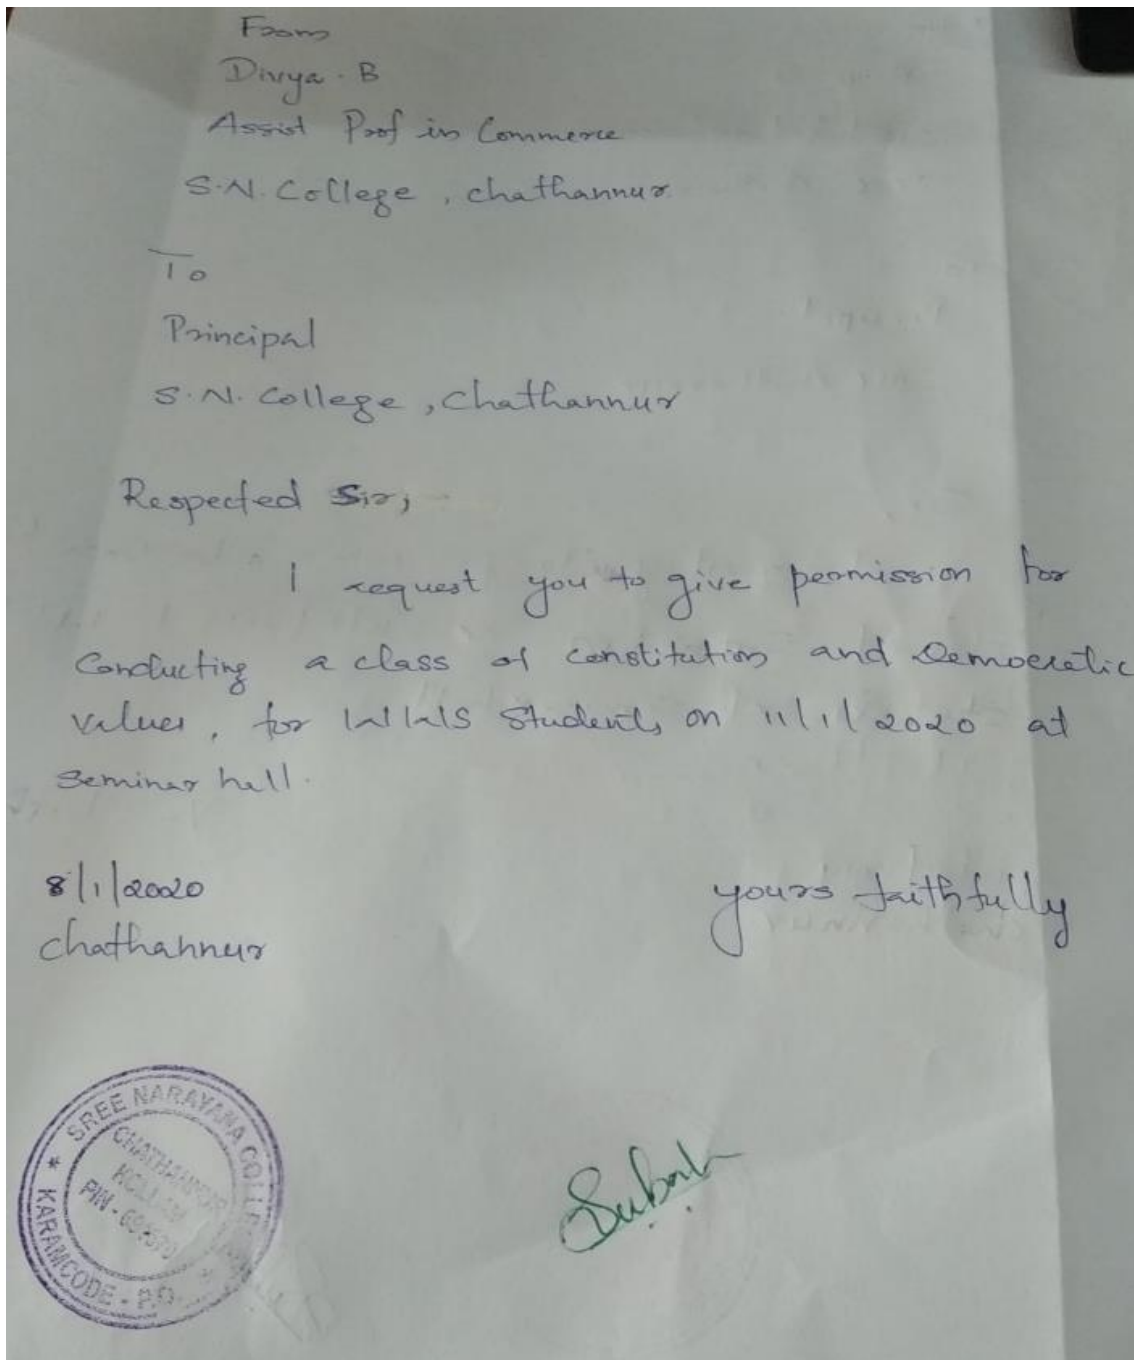 From
Divya . B
Assist Prof in Commerce
S.N. College , chathannur
To
Principal
S.N. College , Chathannur
Respected Sir,
I request you to give permission for
Conducting a class of constitution and Democratic
values , for WWS Students on 11/1/2020 at
Seminar hall .
8/1/2020
chathannur
yours faithfully
SREE NARAYANA COLLEGE
CHATHANNUR
KOLLAM
PIN -
KARAMCODE - P.O